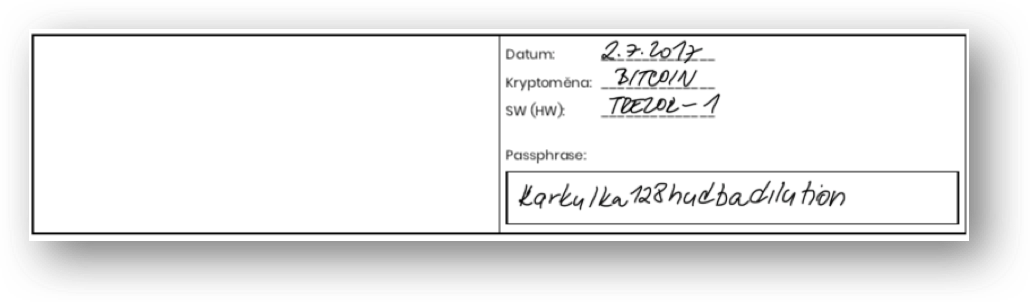 Datum: 2.7.2017
Kryptoměna: BITCOIN
SW (HW): TREZOR-1
Passphrase:
Karkulka128hudbadilution